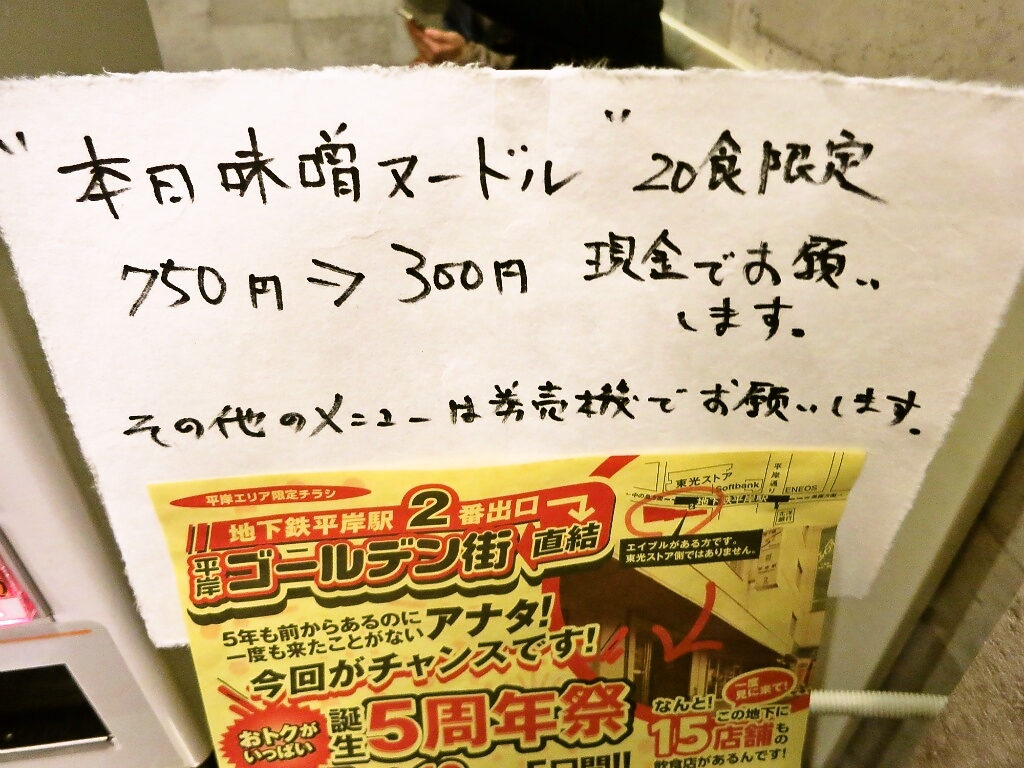 "本日味噌ヌードル" 20食限定
750円⇒300円 現金でお願い
します。
その他のメニューは券売機でお願いします。
平岸エリア限定チラシ
地下鉄平岸駅2番出口
平岸ゴールデン街直結
東光ストア
Softbank
平岸通り
ENEOS
地下鉄平岸駅
エイブルがある方です。
東光ストア側ではありません。
5年も前からあるのに
一度も来たことがないアナタ!
今回がチャンスです!
おトクが
いっぱい
誕生5周年祭
一度
見に来て!
なんと!
この地下に
15店舗もの
飲食店があるんです!